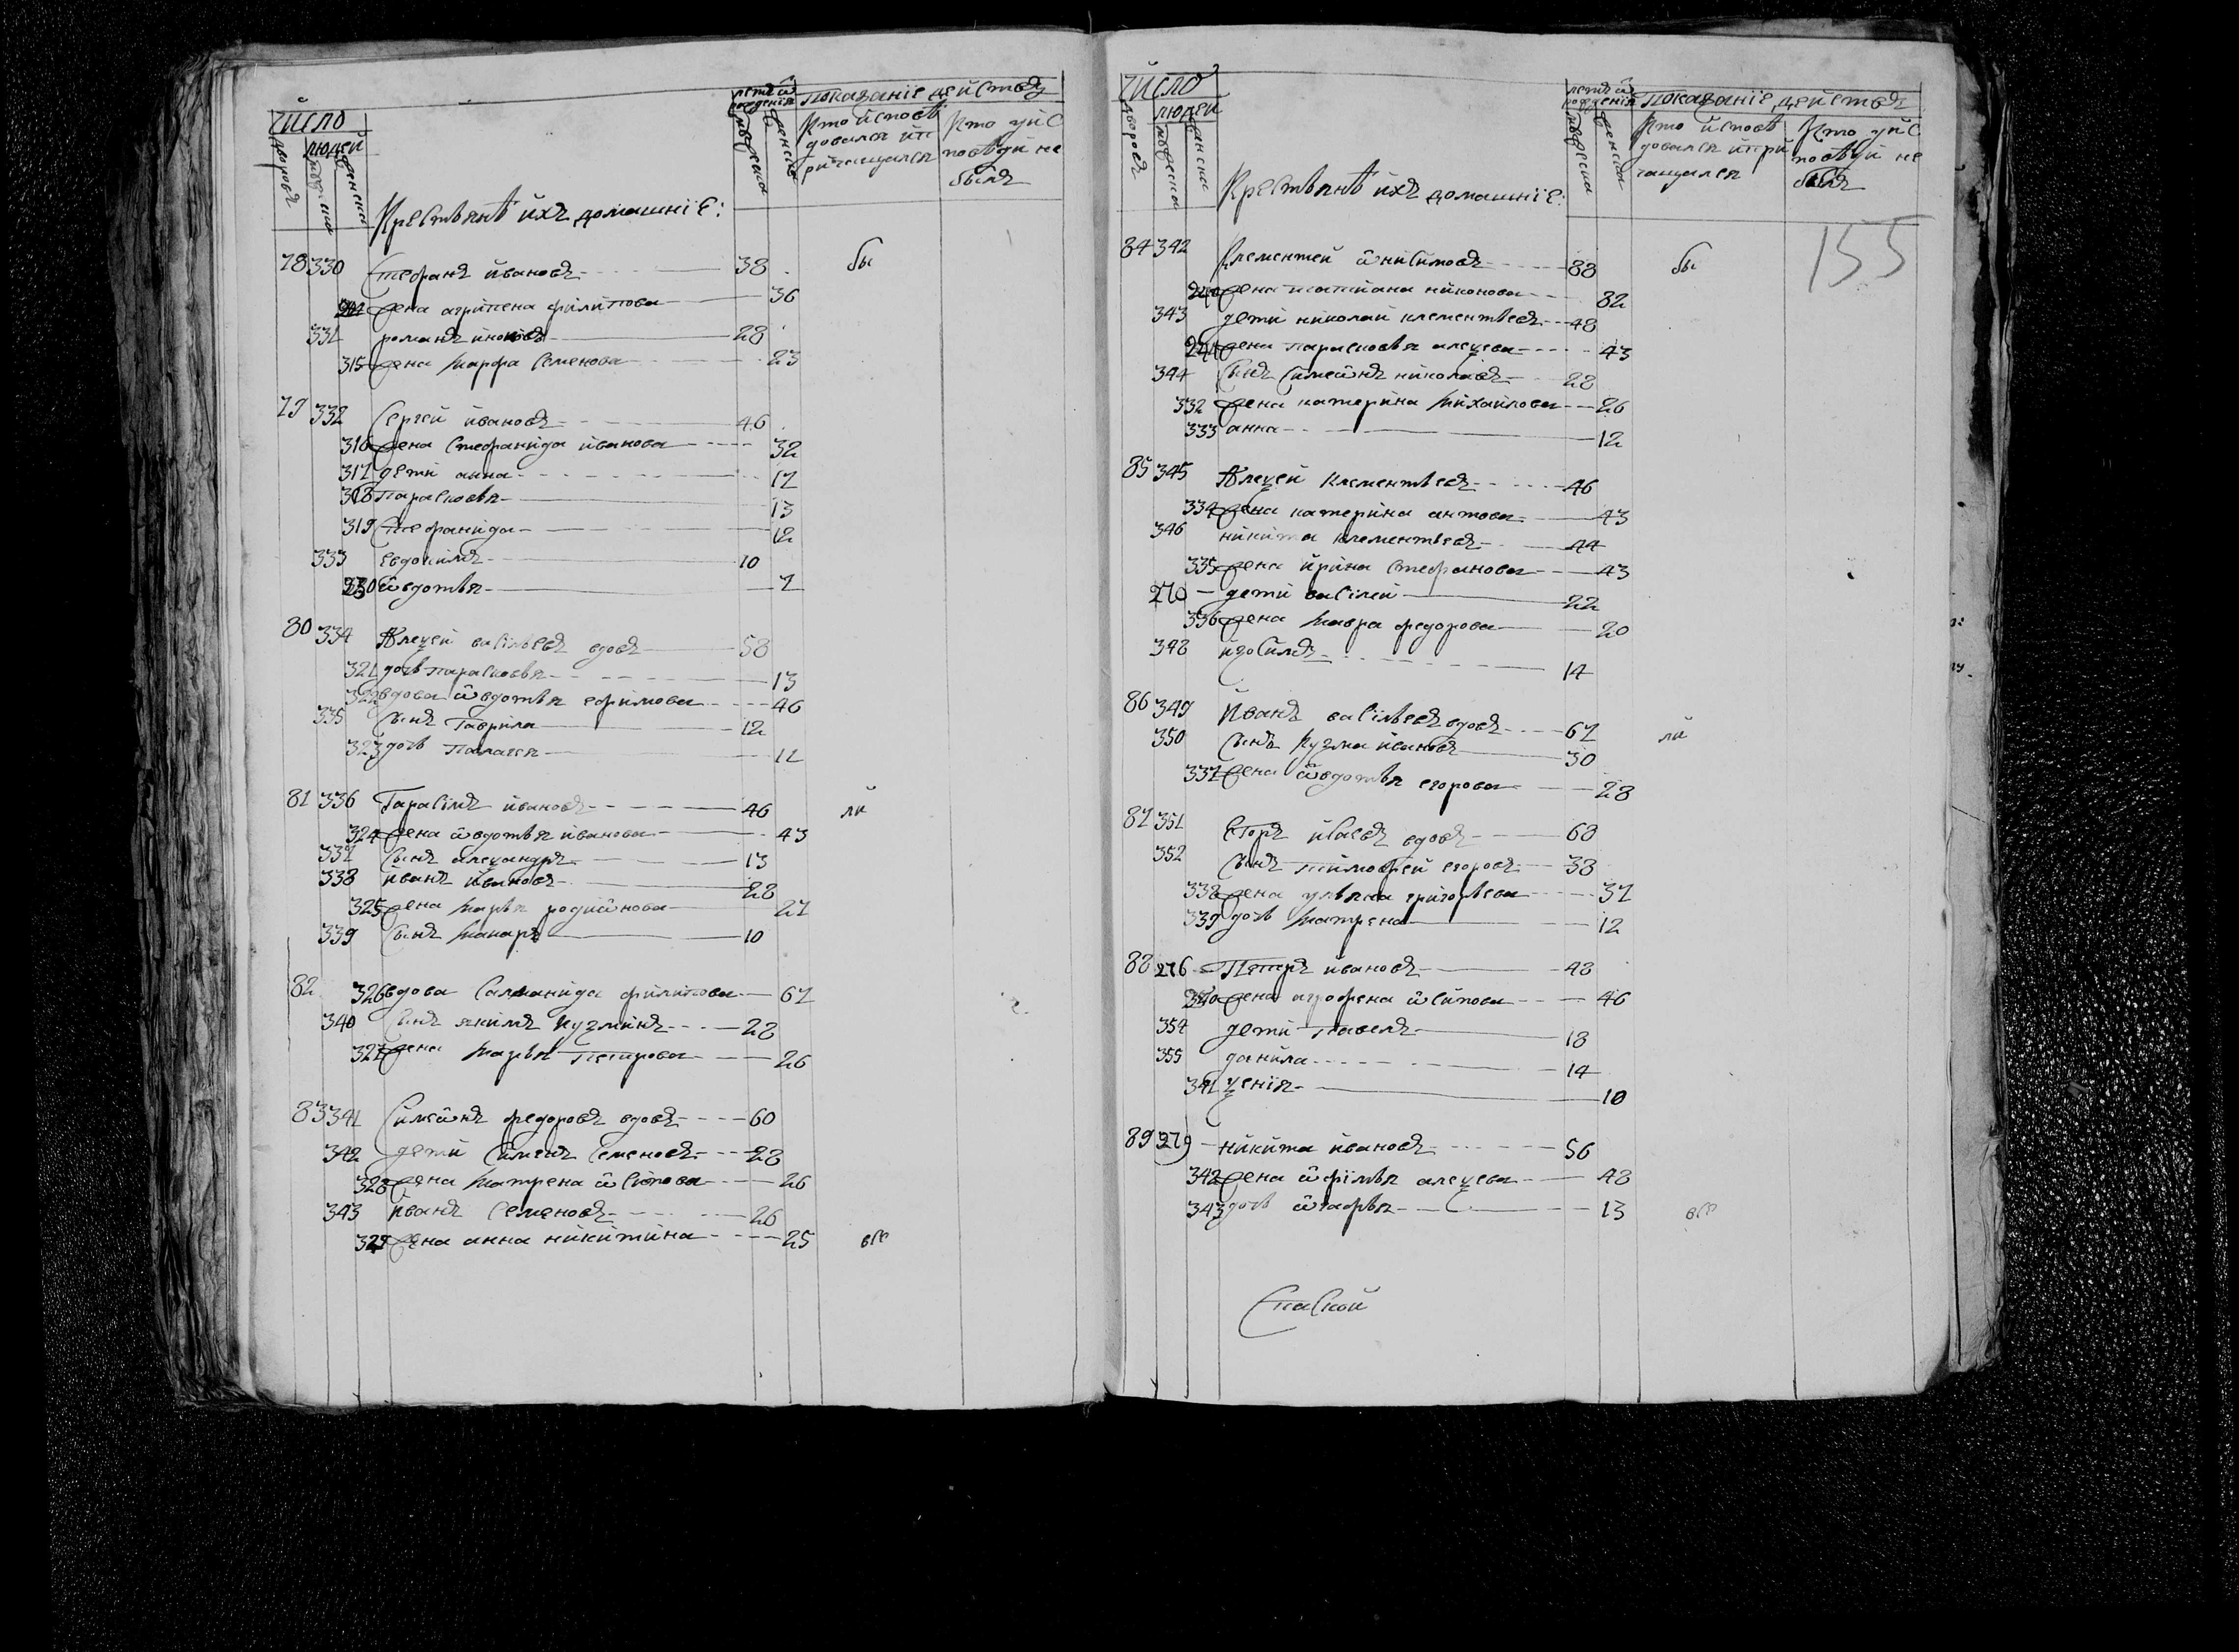 число
дворовъ
людей
мужеска
женска
Крестьянѣ ихъ домашніе:
летъ ѿ рожденія
мужеска
женска
Показаніе действъ
Кто исповѣ
довался ип
ричащался
Кто уис
повѣди не
былъ
78 330 Стефанъ ивановъ 38 бы
жена агрипена филипова 36
331 романъ 28
315 жена марфа Семенова 23
79 332 Сергей ивановъ 46
316 жена Стефанида иванова 32
317 дети анна 17
318 парасковья 13
319 Стефанида 12
333 евдокимъ 10
320 ѿвдотья 7
80 334 Алеѯей васильевъ вдовъ 58
321 дочь парасковья 13
322 вдова ѿвдотья ефимова 46
335 Сынъ Гаврила 12
323 дочь палагея 11
81 336 Гарасимъ ивановъ 46 ли
324 жена ѿвдотья иванова 43
337 Сынъ алеѯандръ 13
338 иванъ ивановъ 28
325 жена марья родиѿнова 27
339 Сынъ макаръ 10
82 326 вдова Саламанида филипова 67
340 Сынъ якимъ кузминъ 28
327 жена марья петрова 26
83 341 Симеѿнъ федоровъ вдовъ 60
342 дети Сименъ Семеновъ 28
328 жена матрена ѿсипова 26
343 иванъ Семеновъ 26
329 жена анна никитина 25 всѣ
число
дворовъ
людей
мужеска
женска
Крестьянѣ ихъ домашніе:
летъ ѿ рожденія
мужеска
женска
Показаніе действъ
Кто исповѣ
довался ипри
чащался
Кто уис
повѣди не
былъ
155
84 342 Клементей ѿнисимовъ 88 бы
жена татиана никонова 82
343 дети николай клементьевъ 48
жена парасковья алеѯева 43
344 Сынъ Симеѿнъ николаевъ 28
332 жена катерина михайлова 26
333 анна 12
85 345 Алеѯей клементьевъ 46
334 жена катерина антова 43
346 никита клементьевъ 44
335 жена ирина Стефанова 43
270 дети василей 22
336 жена мавра федорова 20
348 изосимъ 14
86 349 Иванъ васильевъ вдовъ 67 ли
350 Сынъ кузма ивановъ 30
337 жена ѿвдотья егорова 28
87 351 Егоръ исаевъ вдовъ 68
352 Сынъ тимофей егоровъ 38
338 жена ульяна григорьева 37
339 дочь матрена 12
88 276 Петръ ивановъ 48
340 жена агрофена ѿсипова 46
354 дети павелъ 18
355 данила 14
341 ѯенія 10
89 279 никита ивановъ 56
342 жена ѿфимья алеѯева 48
343 дочь ѿгафья 13 всѣ
Спаской